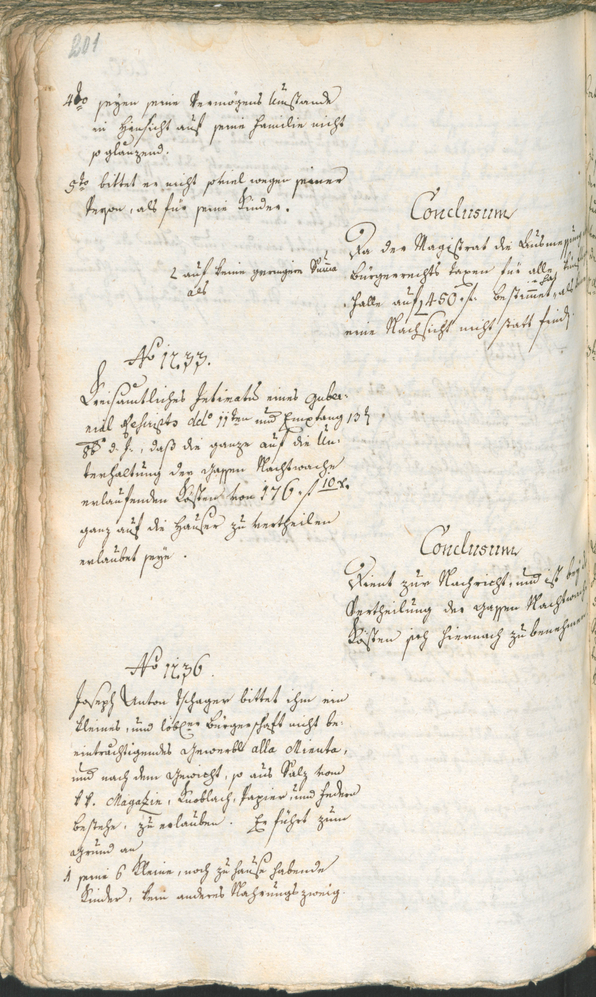 201
4to seyen seine Vermögens Umstände
in Hinsicht auf seine Familie nicht
so glänzend.
5to bittet er nicht soviel wegen seiner
Person, als für seine Kinder.
Conclusum
Da der Magistrat die Ausmessung
Bürgerrechts taxen für alle
Fälle auf 450 f. bestimmt, als
eine Nachsicht nicht statt findet.
auf keine geringere Summa
als
No 1233.
Kreisämtliches Intimatum eines Guber-
nial Rescripts ddo 11ten und Empfang 13t
d. J., daß die ganze auf die Un-
terhaltung der Gassen Nachtwache
erlaufenden Kösten von 176 f 10 x.
ganz auf die Häuser zu vertheilen
erlaubet seye.
Conclusum
Dient zur Nachricht, und ist bey
Vertheilung der Gassen Nachtwach
Kösten sich hiernach zu benehmen
No 1236
Joseph Anton Tschager bittet ihm ein
kleines, und löbler Bürgerschaft nicht be-
einträchtigendes Gewerbl alla Minuta,
und nach dem Gewicht, so aus Salz vom
k k. Magazin, Knoblach, Papier, und Federn
bestehe, zu erlauben. Er führt zum
Grund an
1 seine 6 kleine, noch zu Hause habende
Kinder, kein anderes Nahrungszweig